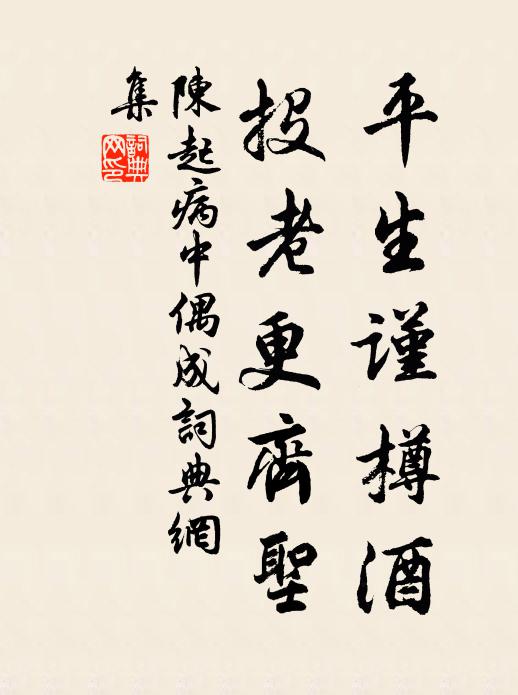 平生謹樽酒
投老更齊聖
陳起病中偶成詞典網
集
詞典網印